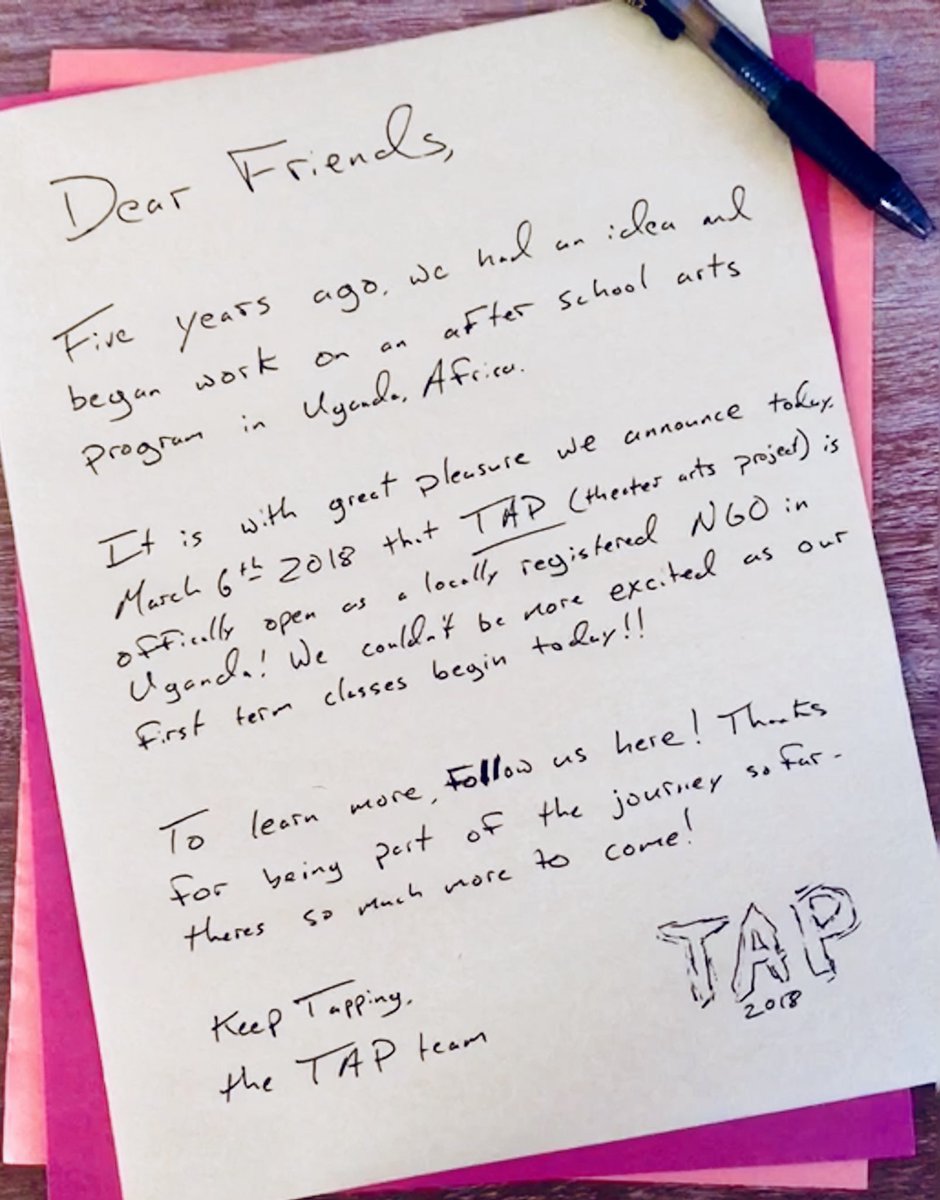 Dear Friends,
Five years ago, we had an idea and
began work on an after school arts
program in Uganda, Africa.
It is with great pleasure we announce today,
March 6th 2018 that TAP (theater arts project) is
offically open as a locally registered NGO in
Uganda! We couldn't be more excited as our
first term classes begin today!!
To learn more, Follow us here! Thanks
for being part of the journey so far -
theres so much more to come!
Keep Tapping,
the TAP team
TAP
2018